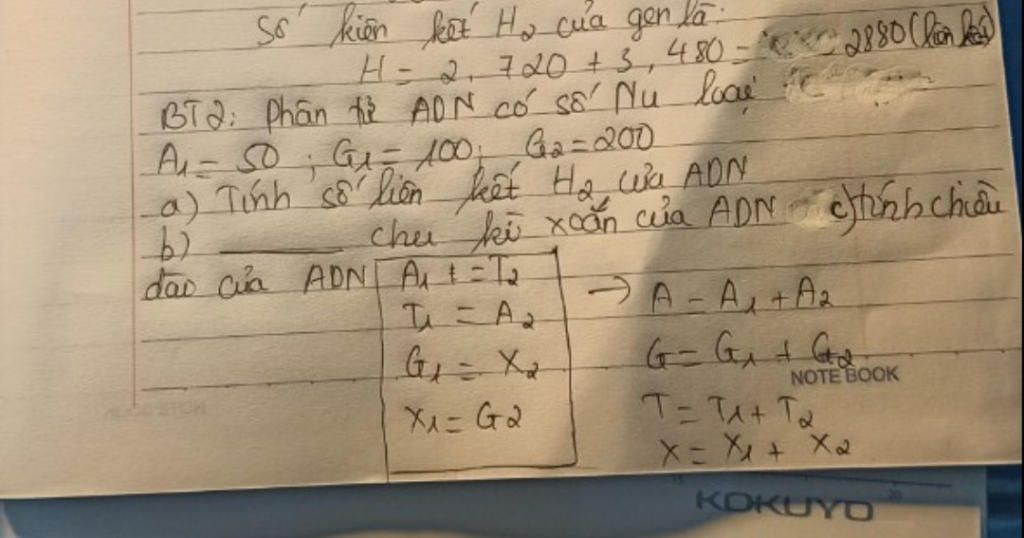 Số liên kết H2 của gen là:
H = 2. 720 + 3, 480 = 2880 (liên kết)
BT2: Phân tử ADN có số Nu loại
A1 = 50 ; G1 = 100; G2 = 200
a) Tính số liên kết H2 của ADN
b) ______ chu kì xoắn của ADN c) tính chiều
dào của ADN
A1 + = T2
T1 = A2
G1 = X2
X1 = G2
→ A = A1 + A2
G = G1 + G2
NOTE BOOK
T = T1 + T2
X = X1 + X2
KOKUYO